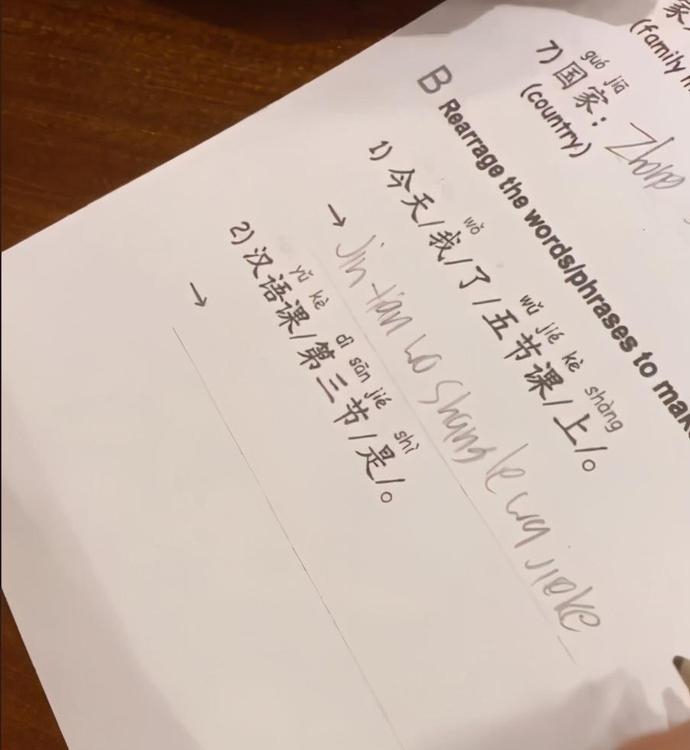 家
(family
guó jiā
7) 国家:
(country)
B Rearrage the words/phrases to mak
wǒ wǔ jié kè shàng
1) 今天/我/了/五节课/上/。
→ Jin tian wo shang le wu jie ke
yǔ kè dì sān jié shì
2) 汉语课/第三节/是/。
→